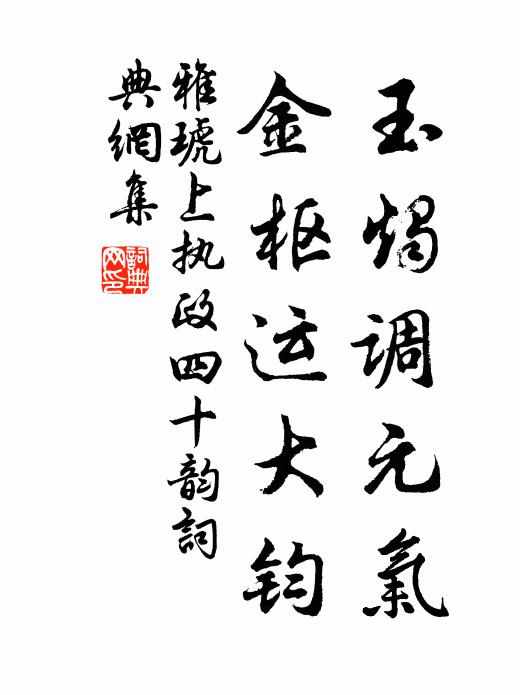 玉燭调元氣
金枢运大钧
雅琥上执政四十韵詞
典網集
詞典
网印